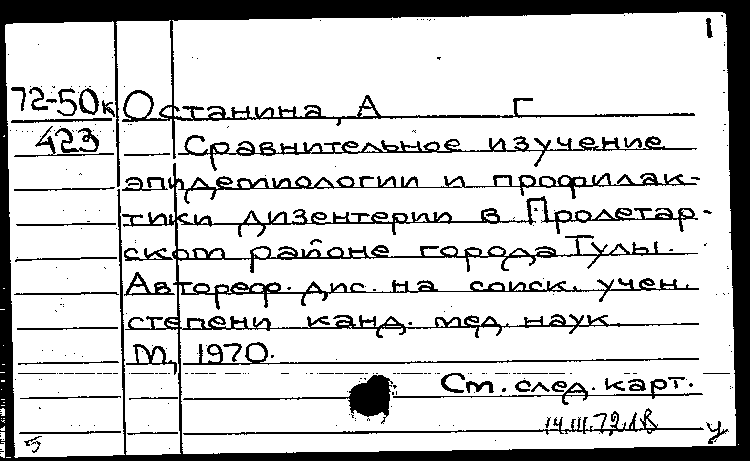 1
72-50к Останина, А Г
423 Сравнительное изучение
эпидемиологии и профилак-
тики дизентерии в Пролетар-
ском районе города Тулы.
Автореф. дис. на соиск. учен.
степени канд. мед. наук.
М., 1970.
См. след. карт.
14.III.72
5 У